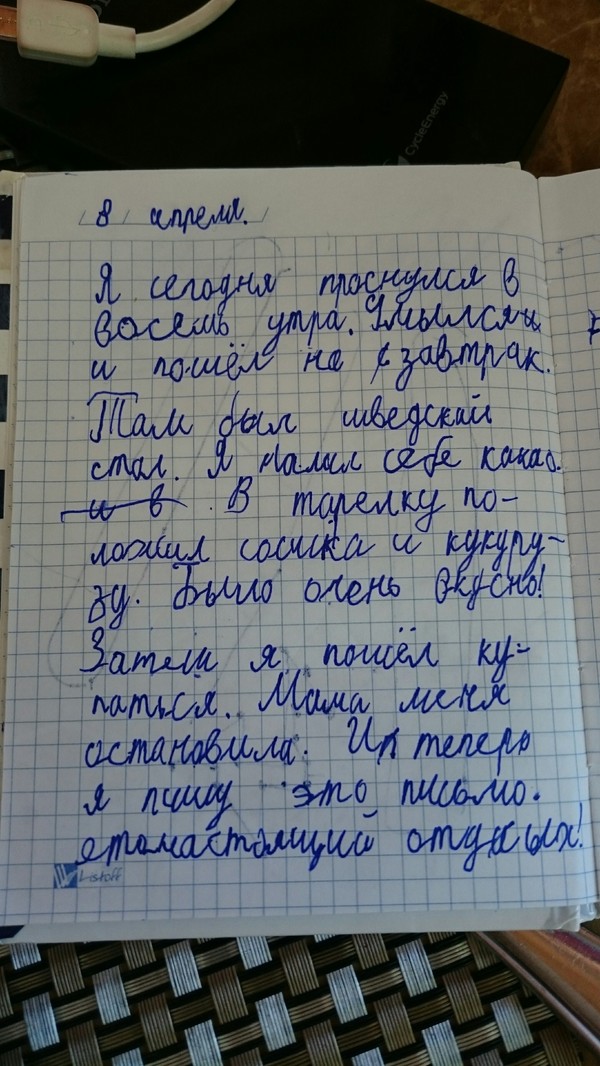 CycleEnergy
8 апреля.
Я сегодня проснулся в
восемь утра. Умылся и
и пошёл на завтрак.
Там был шведский
стал. Я налил себе какао.
и в . В тарелку по-
ложил сосиска и кукуру-
зу. Было очень вкусно!
Затем я пошёл ку-
паться. Мама меня
остановила. И теперь
я пишу это письмо.
етонастоящий отдкых!
Listoff